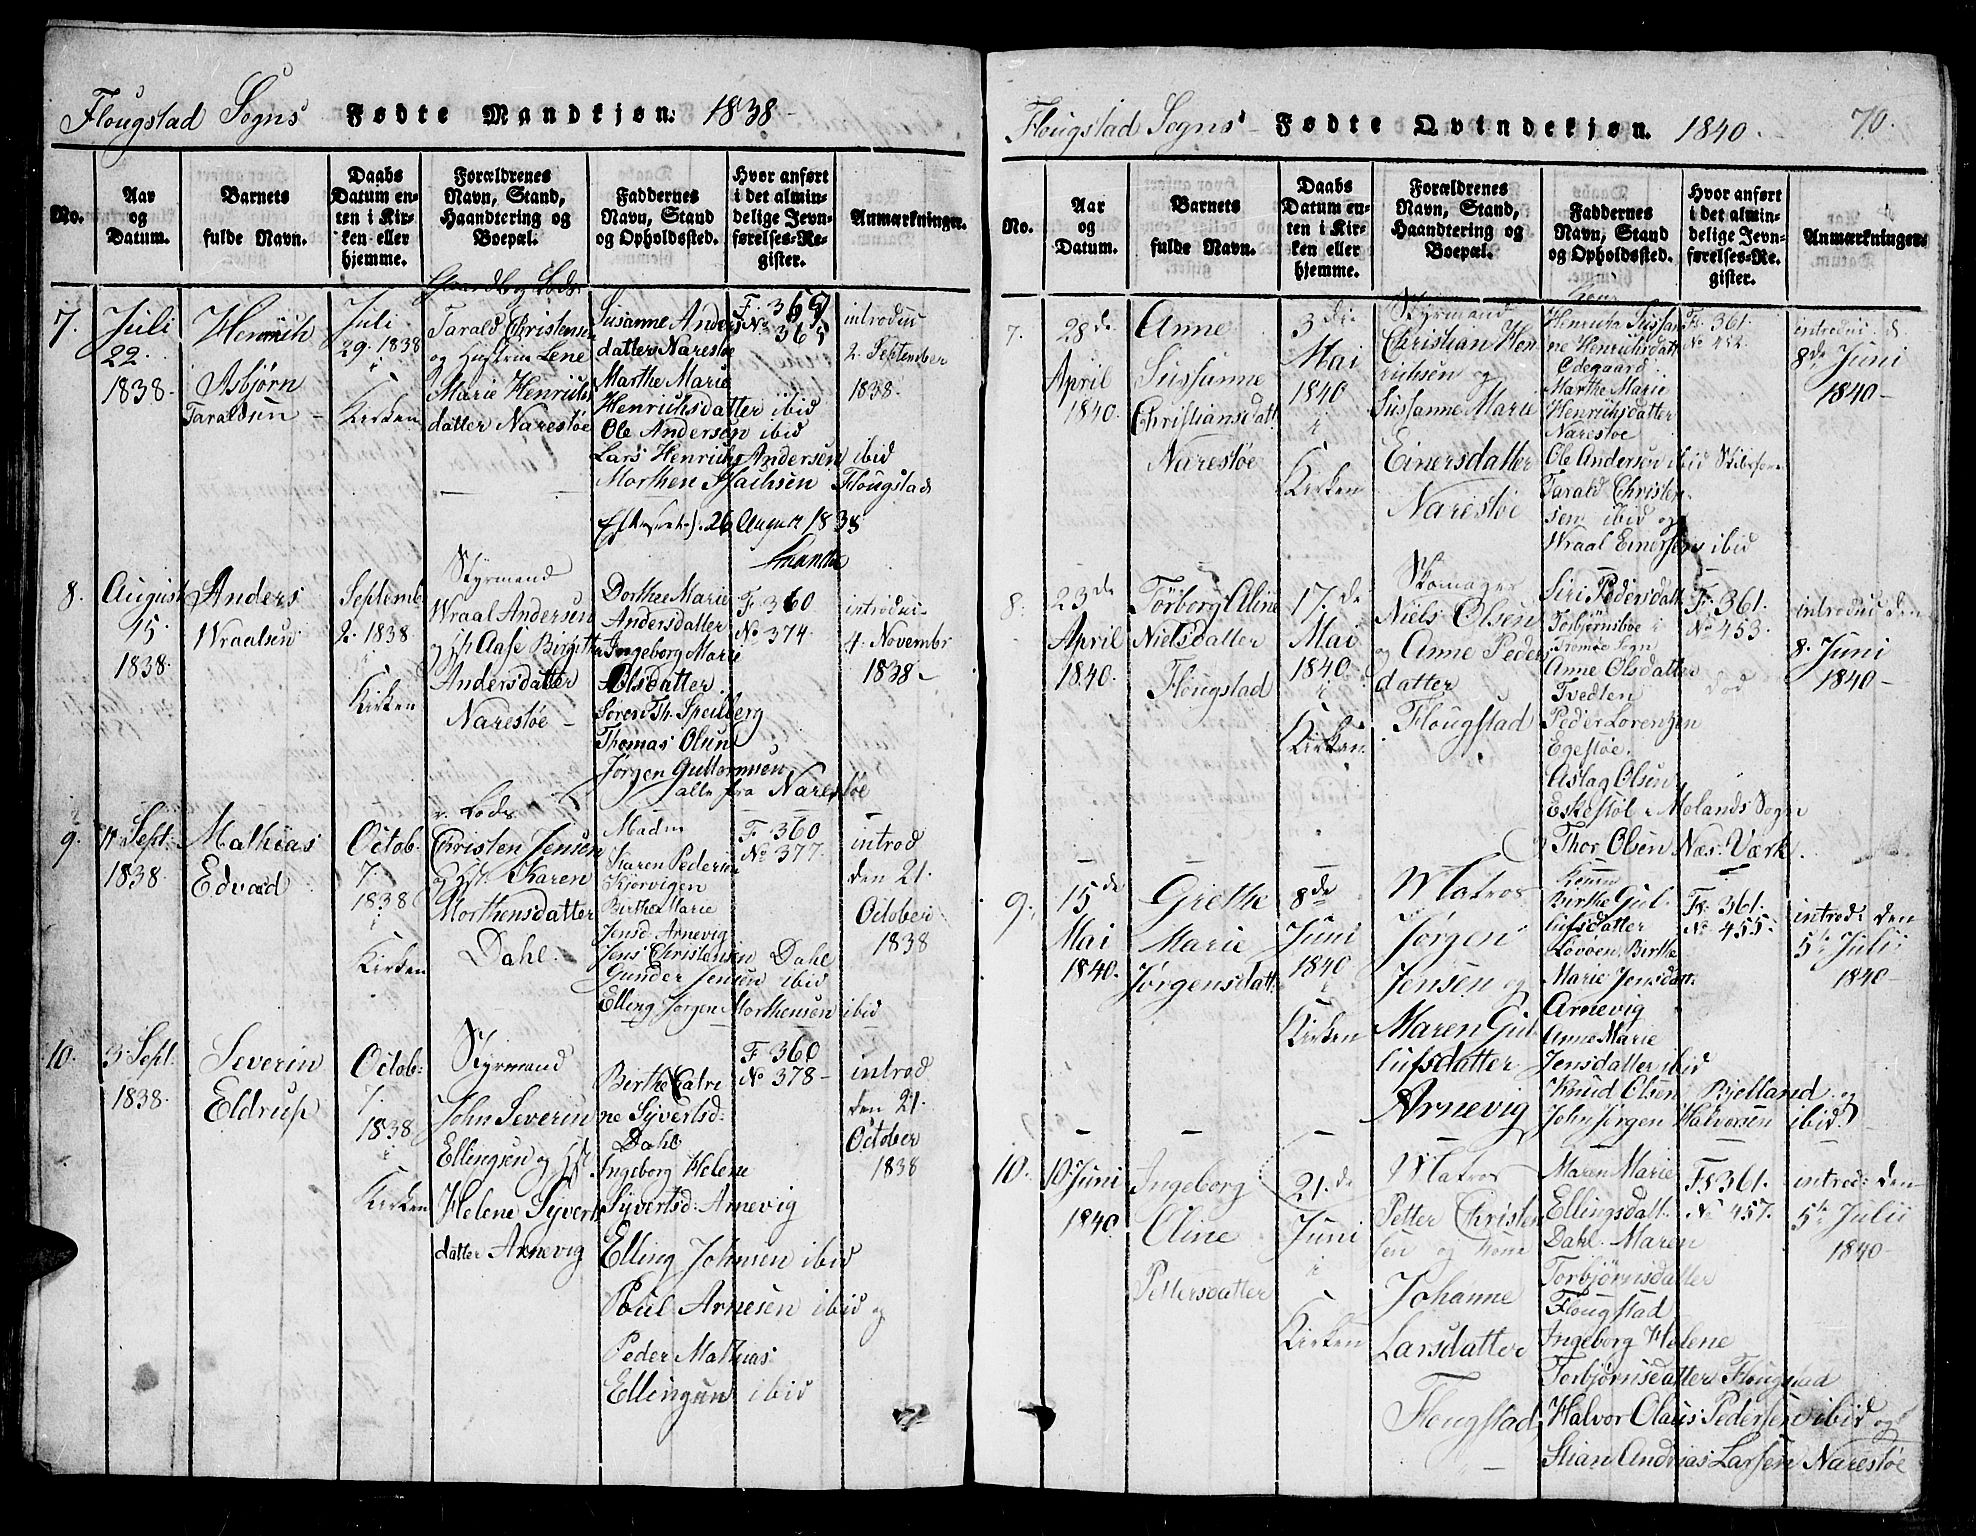 Flougstad Sogns Fødte Mandkjøn. 1838
No.
Aar og Datum.
Barnets fulde Navn.
Daabs Datum enten i Kirken eller hjemme.
Forældrenes Navn, Stand, Haandtering og Boepæl.
Faddernes Navn, Stand og Opholdssted.
Hvor anført i det almindelige Jevnførelses-Register.
Anmærkninger.
7.
Juli
22.
1838
Henrich
Asbjørn
Taraldsen
Juli
29. 1838
i
Kirken
Gaardb og Lods
Tarald Christensen
og Hustrue Lene
Marie Henrichs
datter Narestøe
Susanne Anders
datter Narestøe
Marthe Marie
Henrichsdatter ibid
Ole Andersen ibid
Lars Henrich Andersen ibid
Morthen Isachsen Flougstad
26 August 1838
F. 359
No 365
introdus
2. September
1838.
8.
August
15.
1838
Anders
Wraalsen
Septemb
2. 1838
i
Kirken
Styrmand
Wraal Andersen
og H Aase Birgithe
Andersdatter
Narestøe
Dorthee Marie
Andersdatter
Ingeborg Marie
Olsdatter
Søren Th. Speilberg
Thomas Olsen
Jørgen Guttormsen
alle fra Narestøe
F. 360
No 374.
introdus
4. Novembr
1838
9.
4 Sept.
1838
Mathias
Edvard
Octob.
7.
1838
i
Kirken
Lods
Christen Jensen
og Hst. Karen
Morthensdatter
Dahl.
Madm
Karen Pedersen
Kjørvigen
Birthe Marie
Jensd. Arnevig
Jens Christensen Dahl
Gunder Jensen ibid
Elling Jørgen Morthensen ibid
F. 360
No 377.
introd
den 21.
October
1838
10.
3. Sept.
1838.
Severin
Eldrup
Octob:
7.
1838
i
Kirken
Styrmand
John Severin
Ellingsen og Hst.
Helene Syvert
datter Arnevig
Birthe Catri
ne Syvertsd:
Dahl
Ingeborg Helene
Syvertsd: Arnevig
Elling Johnsen ibid
Poul Arnesen ibid og
Peder Mathias
Ellingsen ibid
F. 360
No 378
introd
den 21.
October
1838
Flougstad Sogns Fødte Qvindekjøn. 1840. 70.
No.
Aar og Datum.
Barnets fulde Navn.
Daabs Datum enten i Kirken eller hjemme.
Forældrenes Navn, Stand, Haandtering og Boepæl.
Faddernes Navn, Stand og Opholdssted.
Hvor anført i det almindelige Jevnførelses-Register.
Anmærkninger.
7.
28de
April
1840.
Anne
Sussanne
Christiansdatt.
Narestøe
3die
Mai
1840
i
Kirken
Styrmand
Christian Hen
richsen og
Sussanne Marie
Einersdatter
Narestøe
Henricha Sussan
ne Henrichsdatt
Ødegaard
Marthe Marie
Henrichsdatter
Narestøe
Ole Andersen ibid
Tarald Christen
sen ibid og
Wraal Einersen ibid
Fs. 361.
No 452.
introdus. d.
8de Juni
1840
8.
23de
April
1840.
Torborg Oline
Nielsdatter
Flougstad
17.de
Mai
1840
i
Kirken
Skomager
Niels Olsen
og Anne Peders
datter
Flougstad
Siri Pedersdatt
Torbjørnsboe i
Tromøe Sogn
Anne Olsdatter
Tvedten
Peder Lorenzen
Egestøe.
Aslag Olsen
Eskestøl i Molands Sogn
og Thor Olsen Næs Værk.
Fs. 361.
No 453.
død
introdus den
8. Juni
1840
9.
15de
Mai
1840.
Grethe
Marie
Jørgensdatt.
8de
Juni
1840
i
Kirken
Matros
Jørgen
Jensen og
Maren Gul
lufsdatter
Arnevig
Birthe Gul
lufsdatter
Lovøen, Birthe
Marie Jensdatt.
Arnevig
Anne Marie
Jensdatter ibid
Knud Olsen Bjelland og
John Jørgen Halvorsen ibid.
Fs. 361.
No 455.
introd: den
5te Julii
1840
10.
10. Juni
1840
Ingeborg
Oline
Pettersdatter
21.de
Juni
i
Kirken
Matros
Petter Christen
sen og Kone
Johanne
Larsdatter
Flougstad
Maren Marie
Ellingsdatt.
Dahl. Maren
Torbjørnsdatter
Flougstad
Ingeborg Helene
Torbjørnsdatter Flougstad
Halvor Claus Pedersen ibid og
Stian Andreas Larsen Narestøe
Fs 361.
No 457.
introd: den
5te Julii
1840